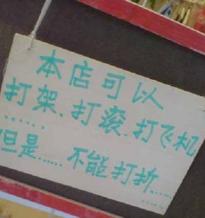 本店可以
打架、打滚、打飞机
......
但是......不能打折....